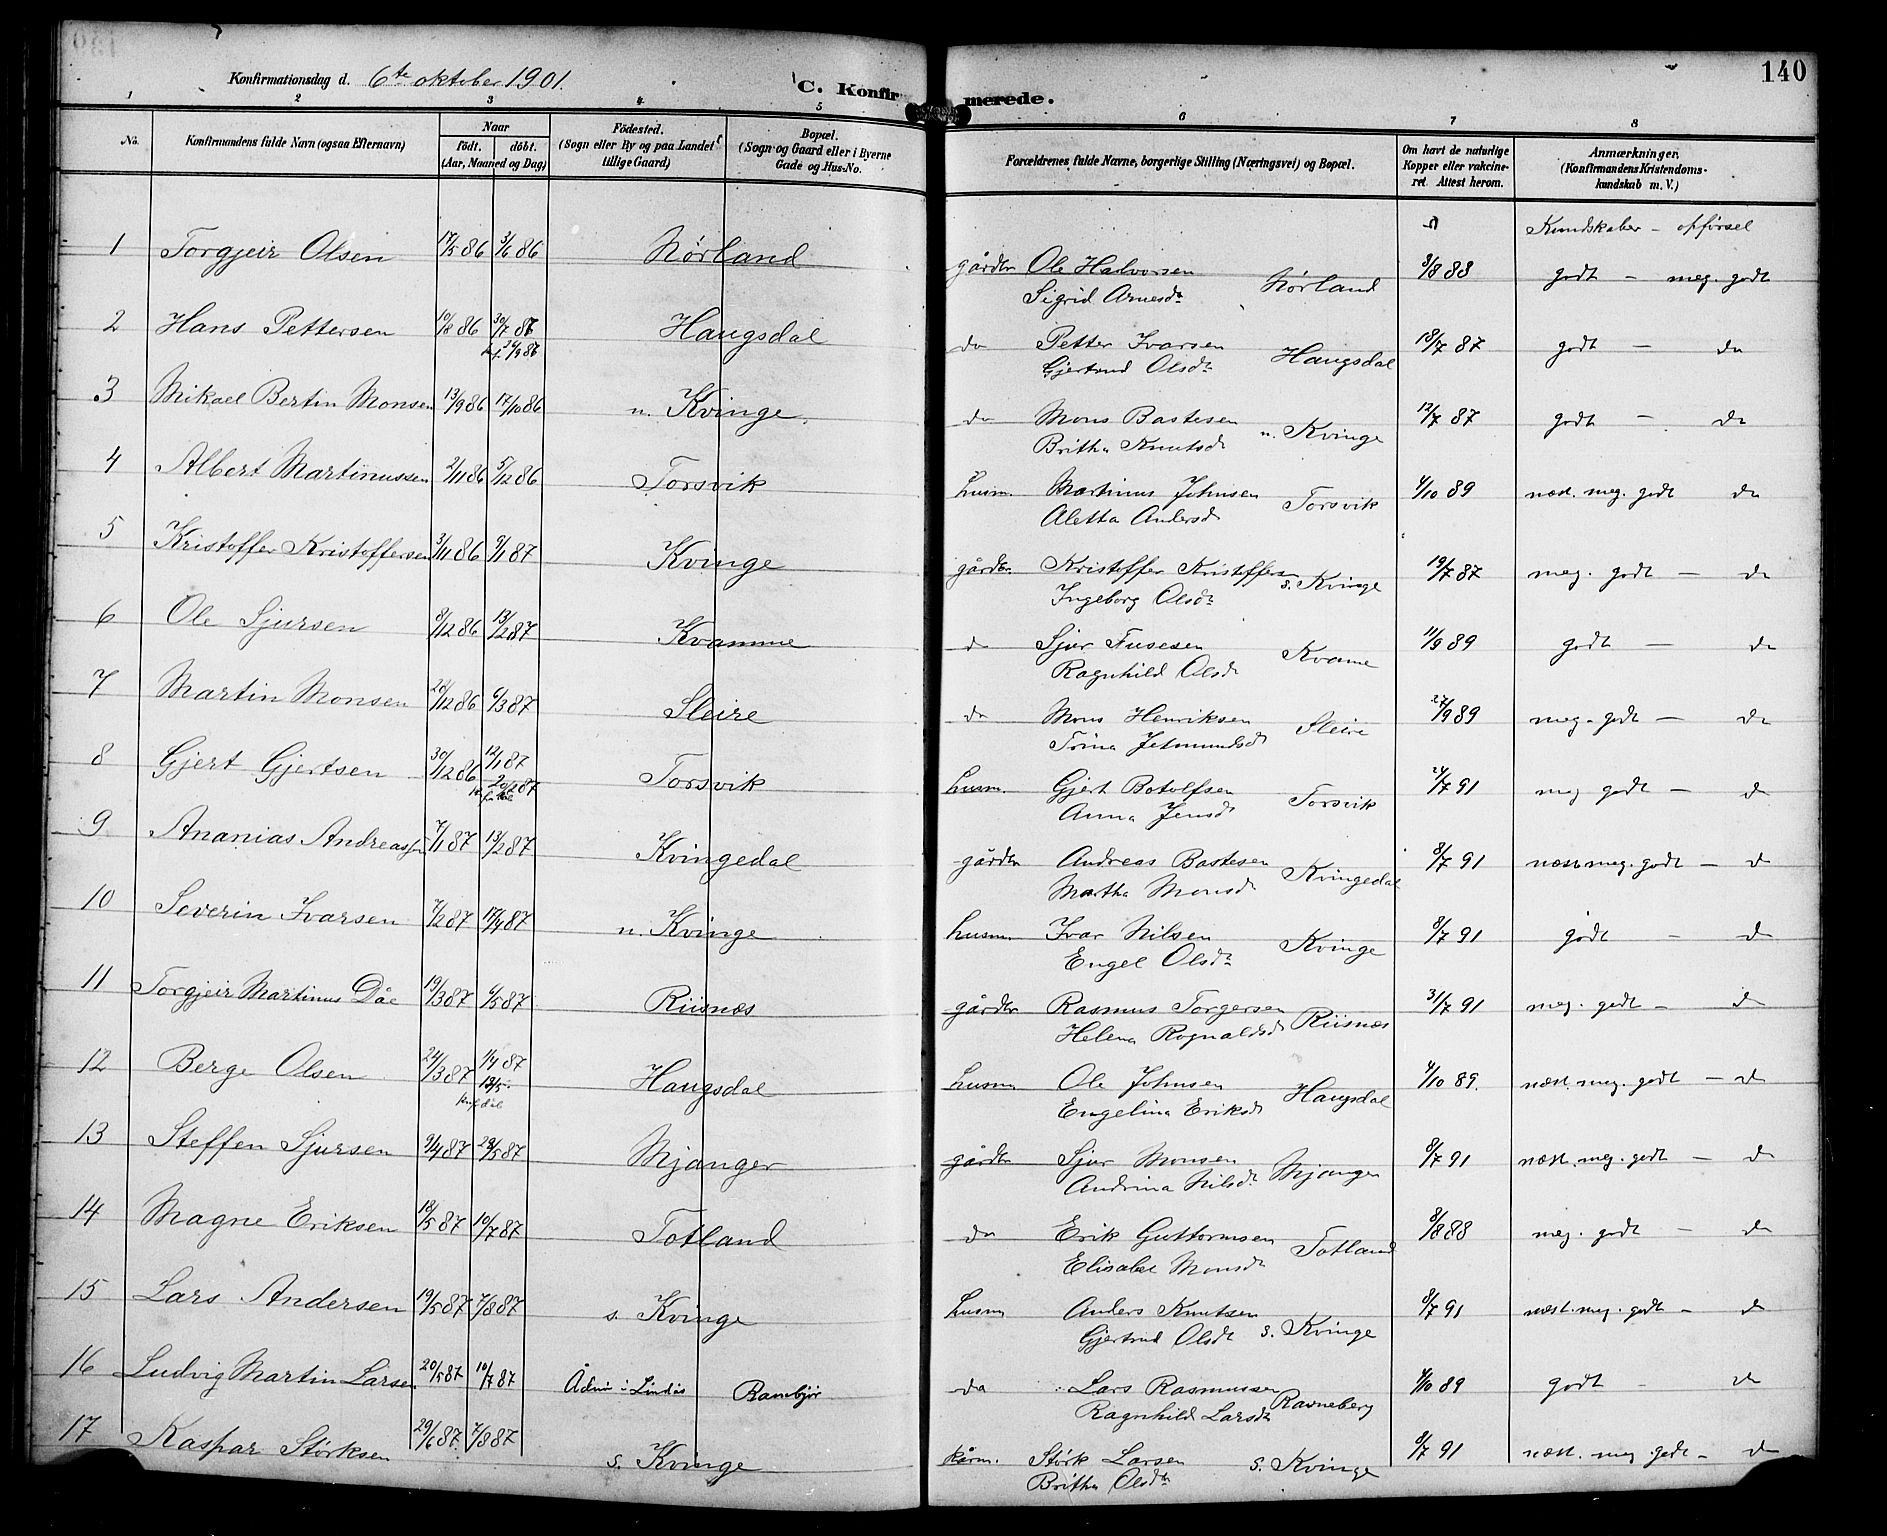 140
Konfirmationsdag d. 6te oktober 1901.
C. Konfirmerede.
1 2 3 4 5 6 7 8
No. Konfirmandens fulde Navn (ogsaa Efternavn) Naar født. døbt. (Aar, Maaned og Dag) Fødested. (Sogn eller By og paa Landet tillige Gaard) Bopæl. (Sogn og Gaard eller i Byerne Gade og Hus-No. Forældrenes fulde Navne, borgerlige Stilling (Næringsvei) og Bopæl. Om havt de naturlige Kopper eller vakcineret. Attest herom. Anmærkninger. (Konfirmandens Kristendomskundskab m. V.)
Kundskaber - opførsel
1 Torgjeir Olsen 17/5 86 3/6 86 Nørland gårdbr Ole Halvorsen Nørland 3/8 88 godt - meg. godt
Sigrid Arnesdtr
2 Hans Pettersen 10/8 86 30/7 86 Haugsdal do Petter Ivarsen Haugsdal 18/7 87 godt - do
26/9 86 Gjertrud Olsdtr
3 Mikael Bertin Monsen 13/9 86 17/10 86 n. Kvinge do Mons Bastesen n. Kvinge 12/7 87 godt - do
Britha Knutsdtr
4 Albert Martinussen 2/11 86 5/12 86 Torsvik husm. Martinus Johnsen Torsvik 4/10 89 næst. meg. godt do
Aletta Andersdtr
5 Kristoffer Kristoffersen 3/11 86 9/1 87 Kvinge gårdbr. Kristoffer Kristoffersen s. Kvinge 19/7 87 meg. godt - do
Ingeborg Olsdtr
6 Ole Sjursen 8/12 86 13/2 87 Kvamme do Sjur Fusesen Kvame 11/9 89 godt - do
Ragnhild Olsdtr
7 Martin Monsen 26/12 86 6/3 87 Sleire do Mons Henriksen Sleire 27/9 89 meg. godt - do
Trina Jetmundsdtr
8 Gjert Gjertsen 30/12 86 12/1 87 Torsvik husm. Gjert Botolfsen Torsvik 24/7 91 meg godt - do
20/2 87 Anna Jensdtr
9 Ananias Andreassen 7/1 87 13/2 87 Kvingedal gårdbr Andreas Bastesen Kvingedal 8/7 91 næst meg. godt - do
Martha Monsdtr
10 Severin Ivarsen 7/2 87 17/4 87 n. Kvinge husm. Ivar Nilsen Kvinge 8/7 91 godt - do
Engel Olsdtr
11 Torgjeir Martinus Dåe 19/3 87 6/5 87 Riisnæs gårdbr Rasmus Torgersen Riisnæs 31/7 91 meg. godt - do
Helena Rognaldsdtr
12 Berge Olsen 24/3 87 1/4 87 Haugsdal husm Ole Johnsen Haugsdal 4/10 89. næst. meg. godt - do
Engelina Eriksdtr
13 Steffen Sjursen 9/4 87 28/5 87 Mjanger gårdbr Sjur Monsen Mjanger 8/7 91 næst. meg. godt - do
Andrina Nilsdtr
14 Magne Eriksen 18/5 87 10/7 87 Totland do Erik Guttormsen Totland 8/8 88 meg. godt - do
Elisabet Monsdtr
15 Lars Andersen 19/5 87 7/8 87 s. Kvinge husm Anders Knutsen s. Kvinge 8/7 91 næst. meg. godt - do
Gjertrud Olsdtr
16 Ludvig Martin Larsen 20/5 87 10/7 87 i Lindås do Lars Rasmussen Ravneberg 4/10 89 godt - do
Ragnhild Larsdtr
17 Kaspar Størksen 29/6 87. 7/8 87 s. Kvinge kårm. Størk Larsen s. Kvinge 8/7 91 næst. meg. godt - do
Britha Olsdtr